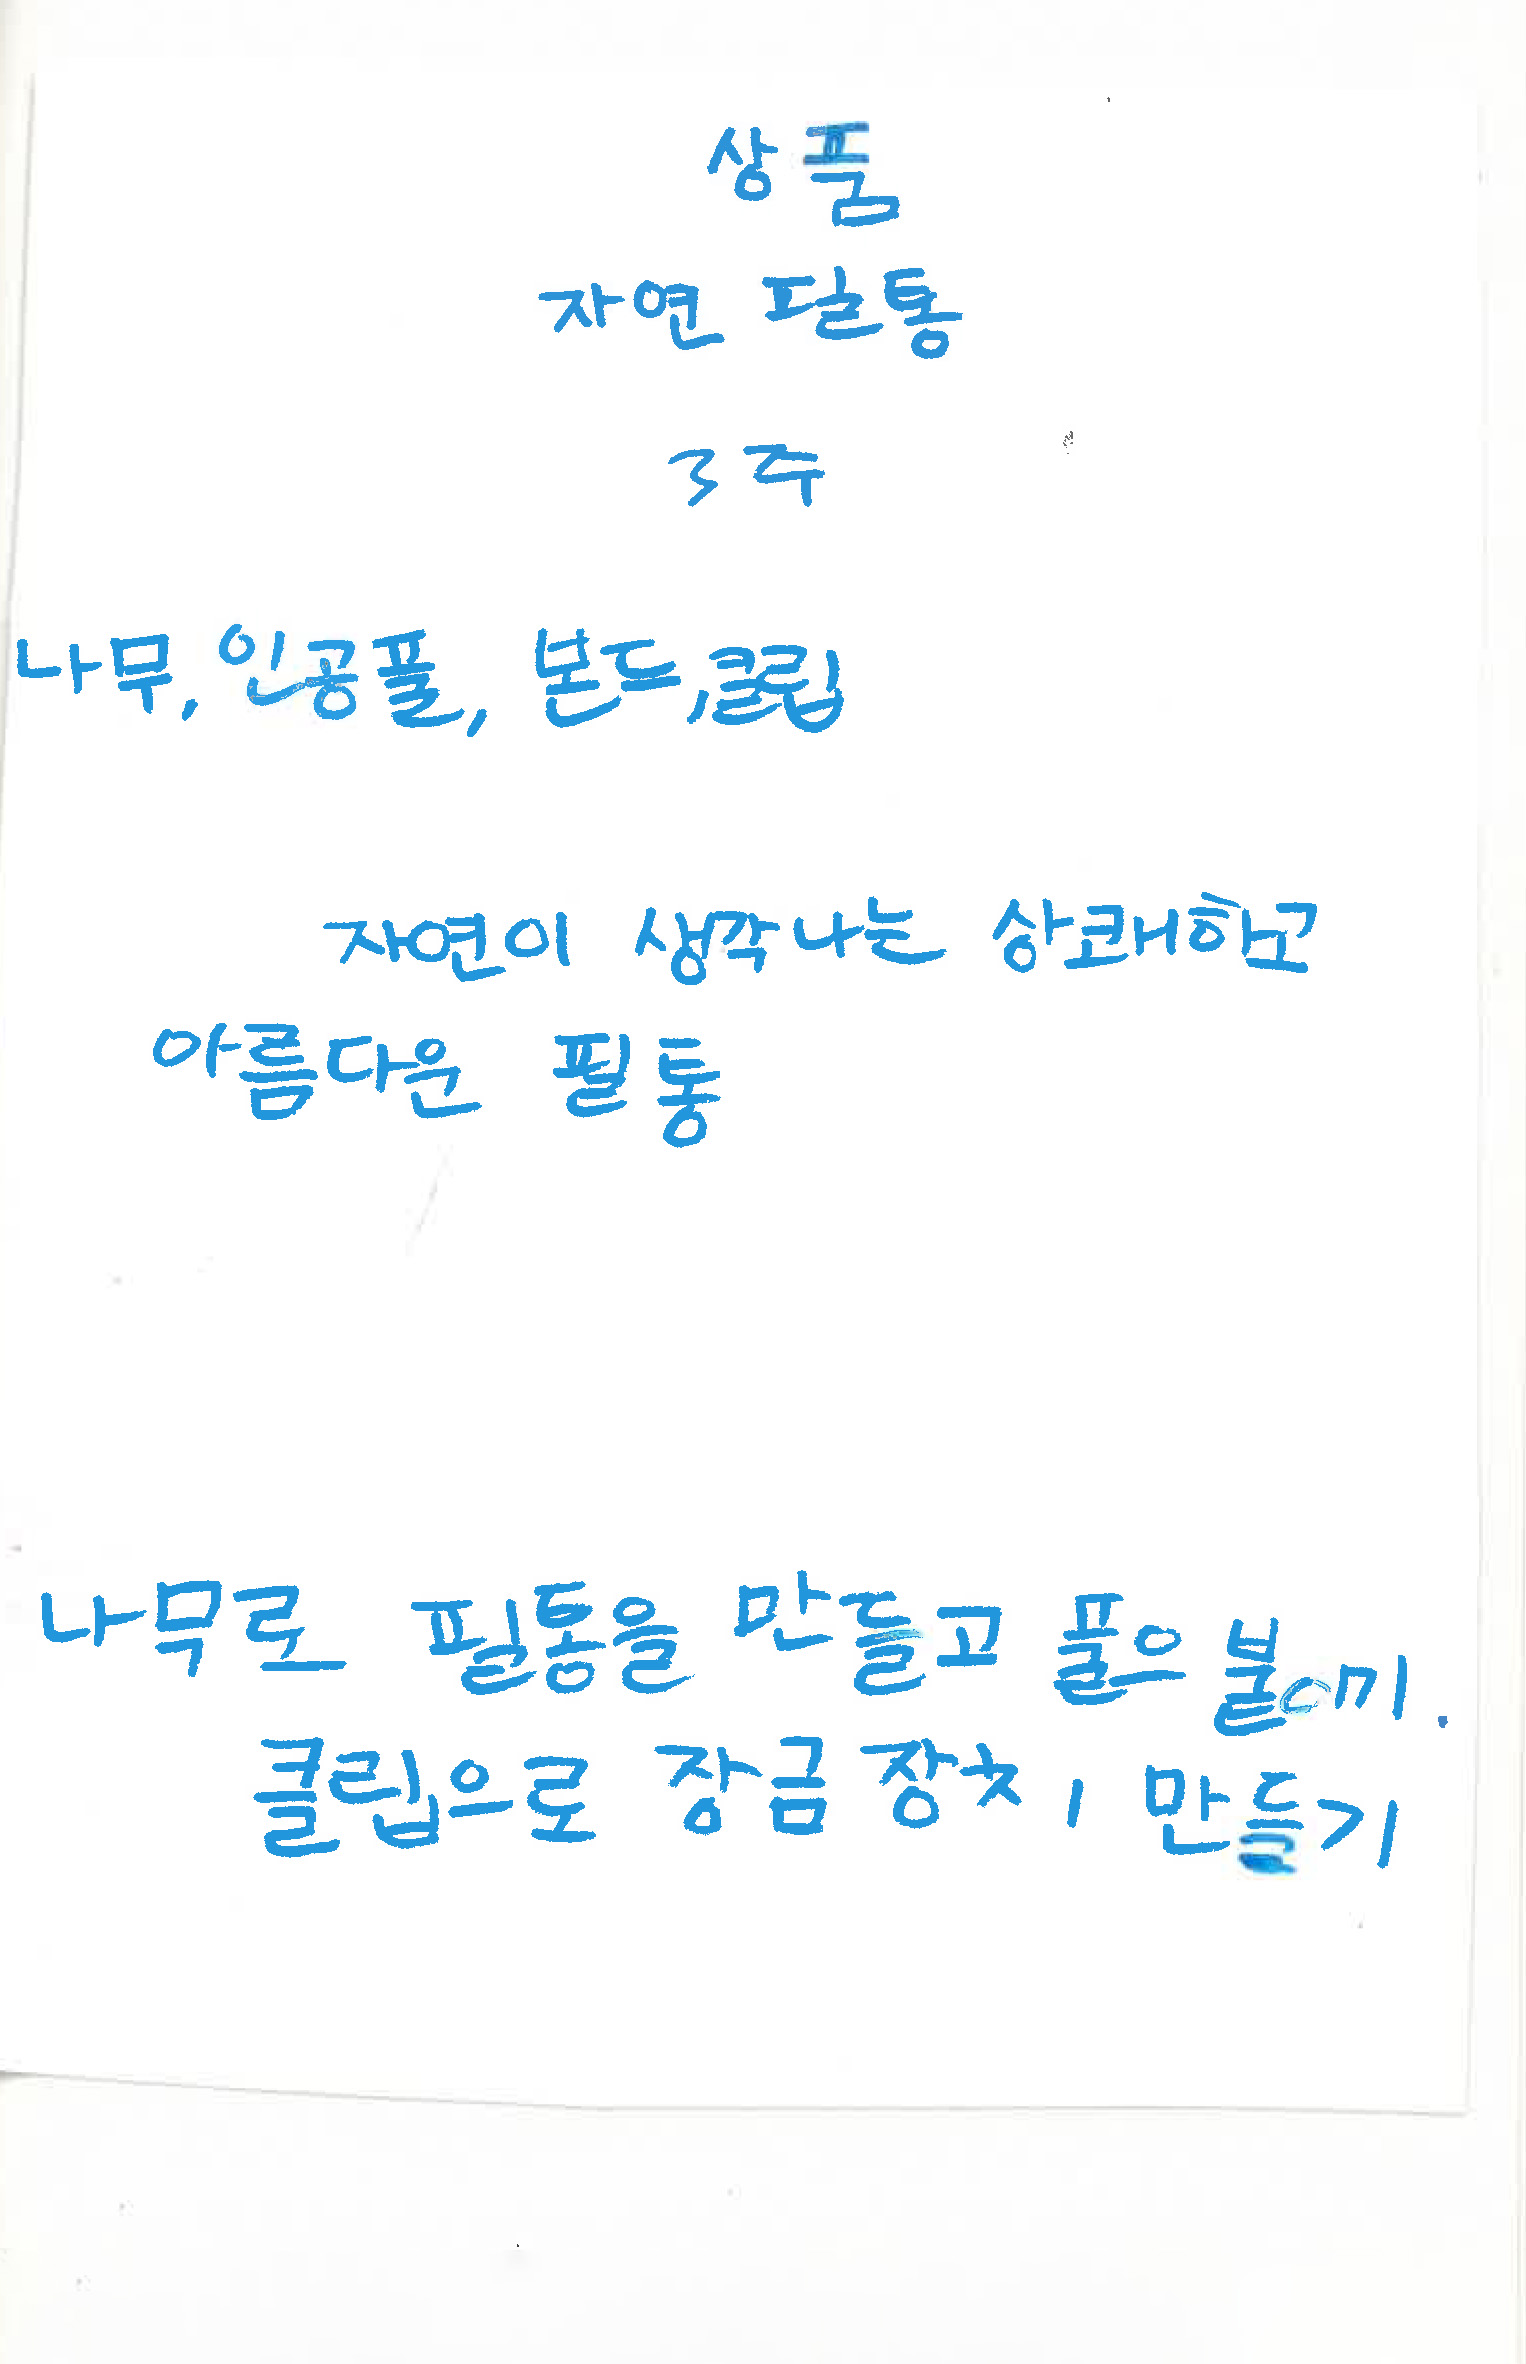 상품
자연 필통
3주
나무, 인공풀, 본드, 클립
자연이 생각나는 상쾌하고
아름다운 필통
나무로 필통을 만들고 풀으
클립으로 장금장치 만들기